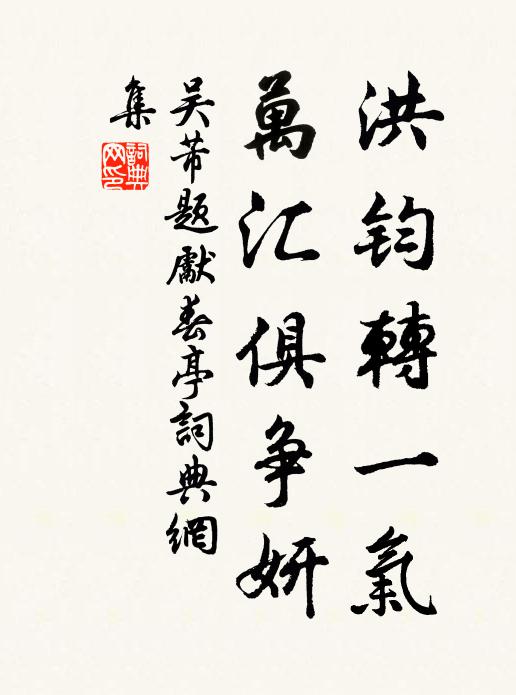 洪钧轉一氣
萬汇俱争妍
吴芾题獻春亭詞典網
集
詞典
网印